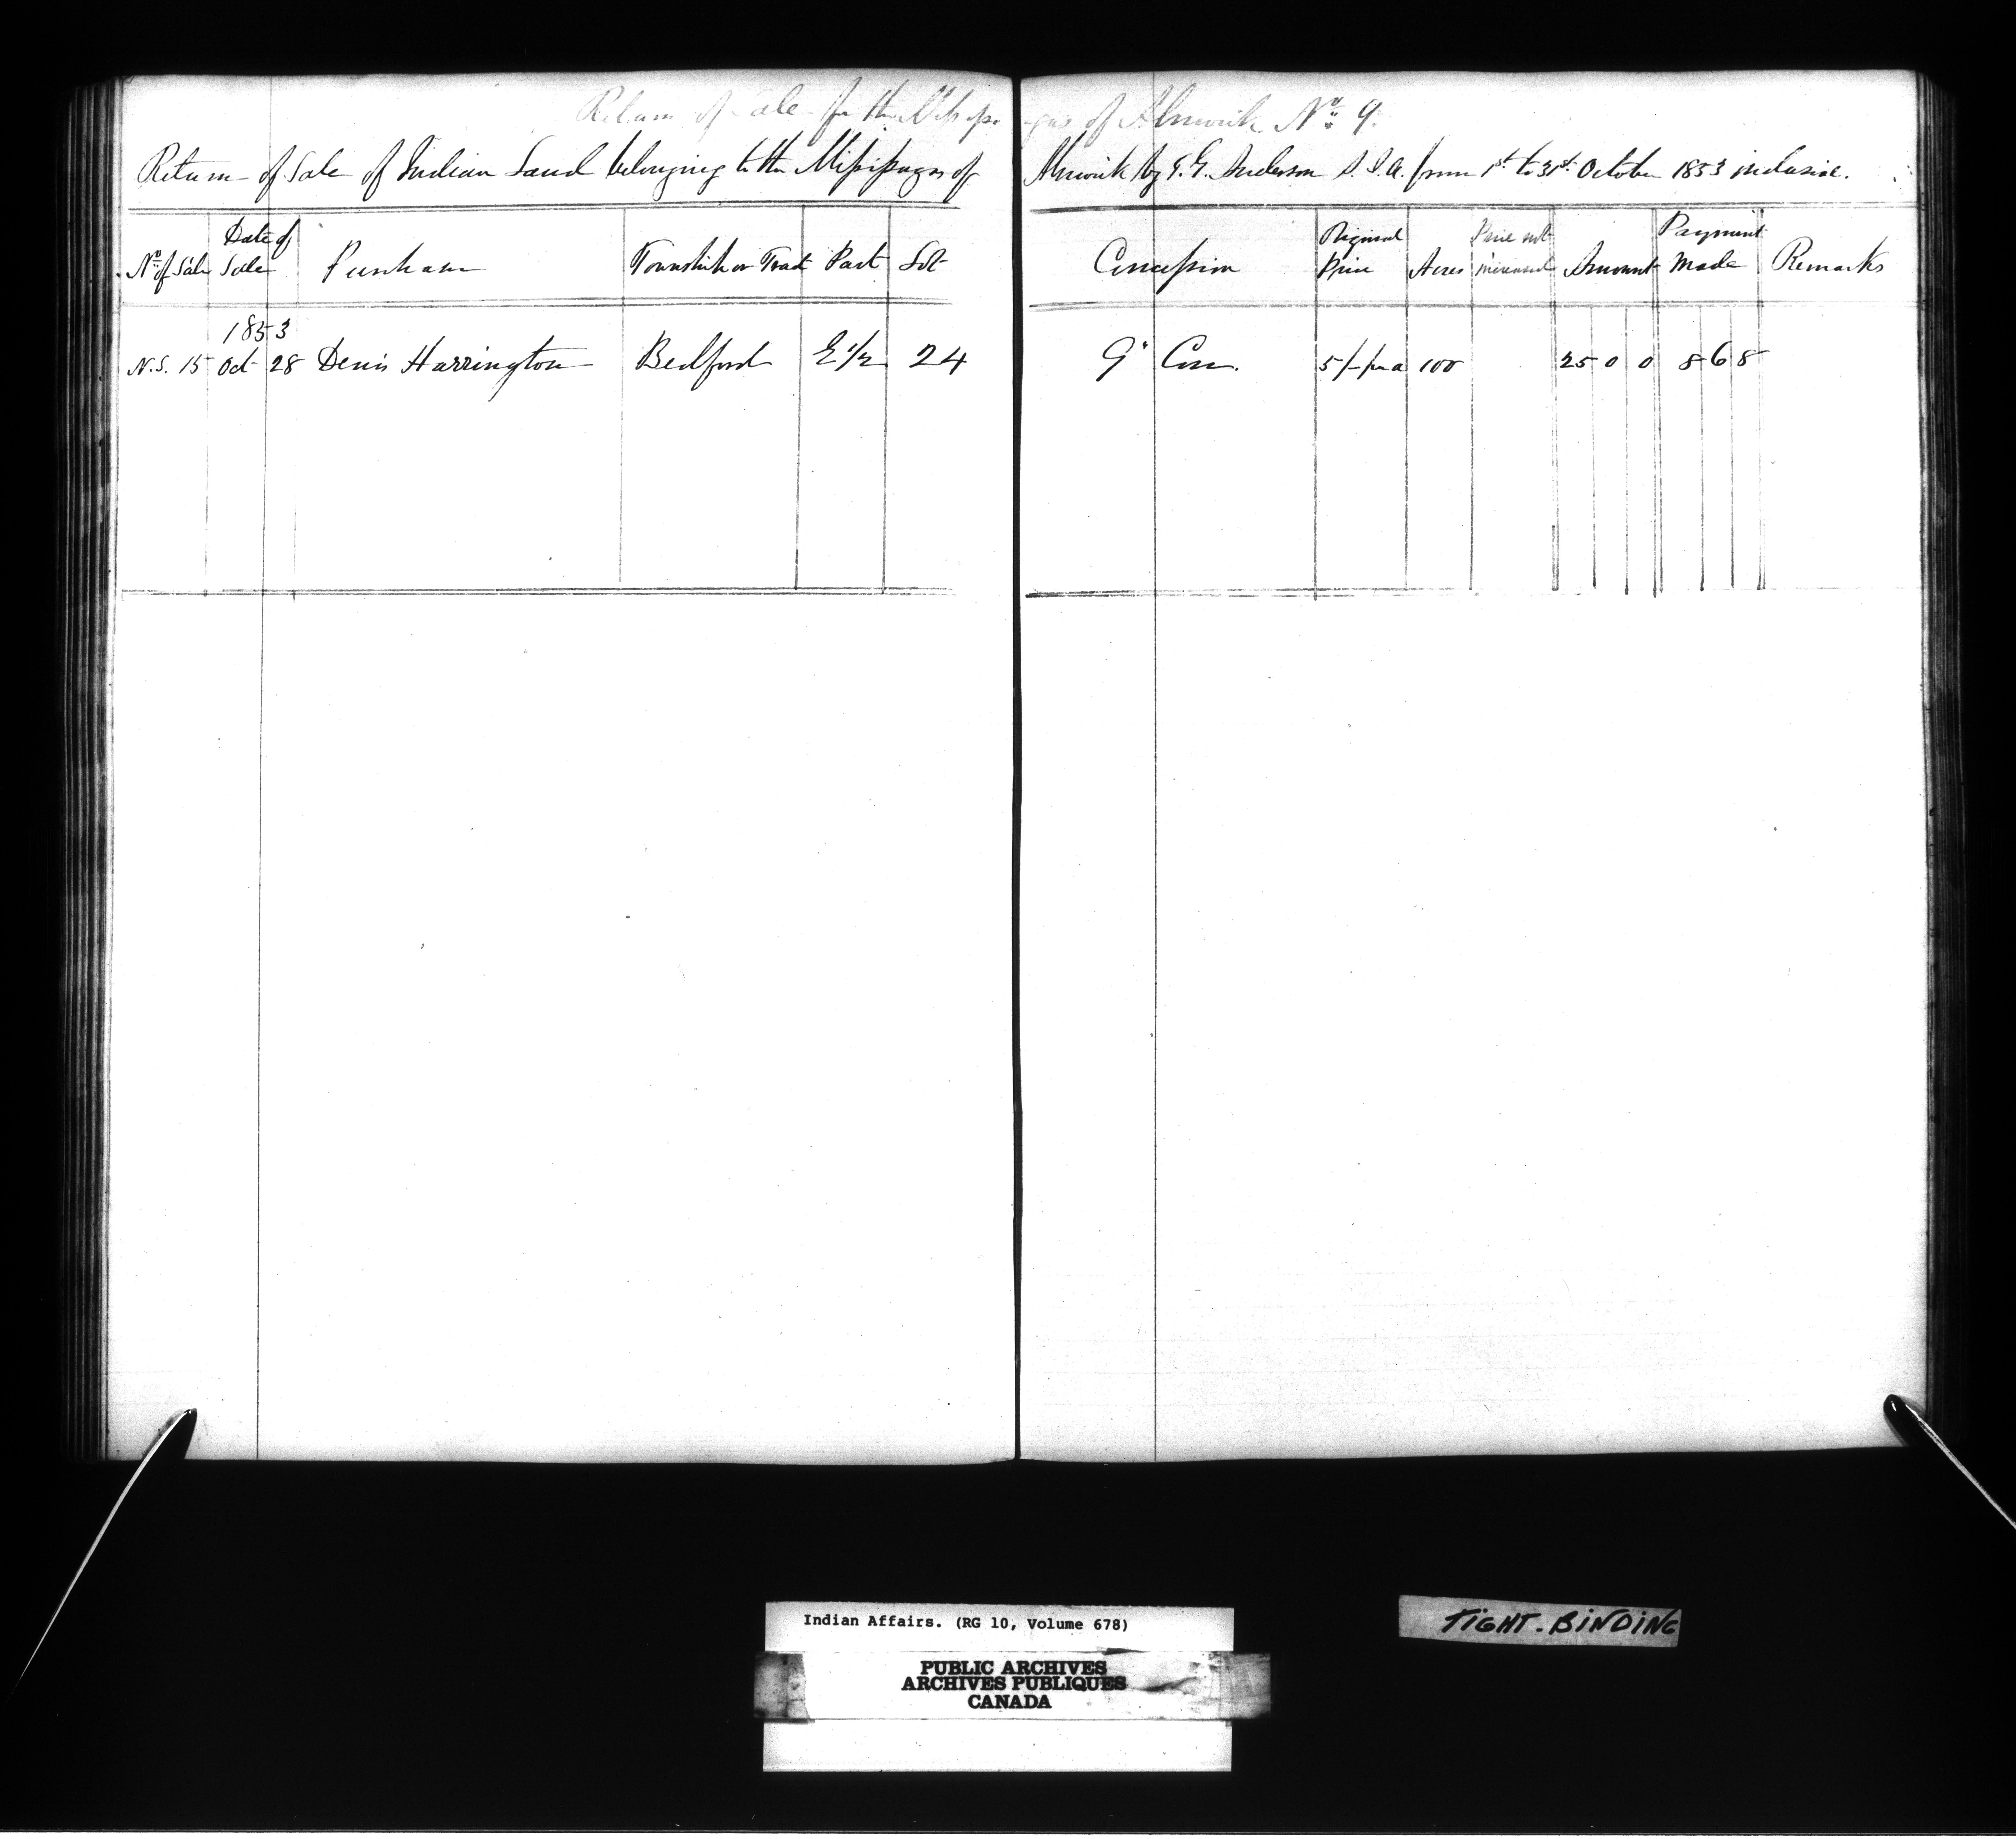 Return of Sale for the Missisagas of Alnwick No. 9.
Return of Sale of Indian Land belonging to the Missisagas of Alnwick by T. G. Anderson S. I. A. from 1st to 31st October 1853 inclusive.
No. of Sale | Date of Sale | Purchaser | Township or Tract | Part | Lot | Concession | Original Price | Acres | Price not increased | Amount | Payment Made | Remarks
1853
N.S. 15 | Oct 28 | Denis Harrington | Bedford | E 1/2 | 24 | 9" Con. | 5/- per a | 100 | 25 0 0 | 8 6 8
Indian Affairs. (RG 10, Volume 678)
PUBLIC ARCHIVES
ARCHIVES PUBLIQUES
CANADA
TIGHT-BINDING